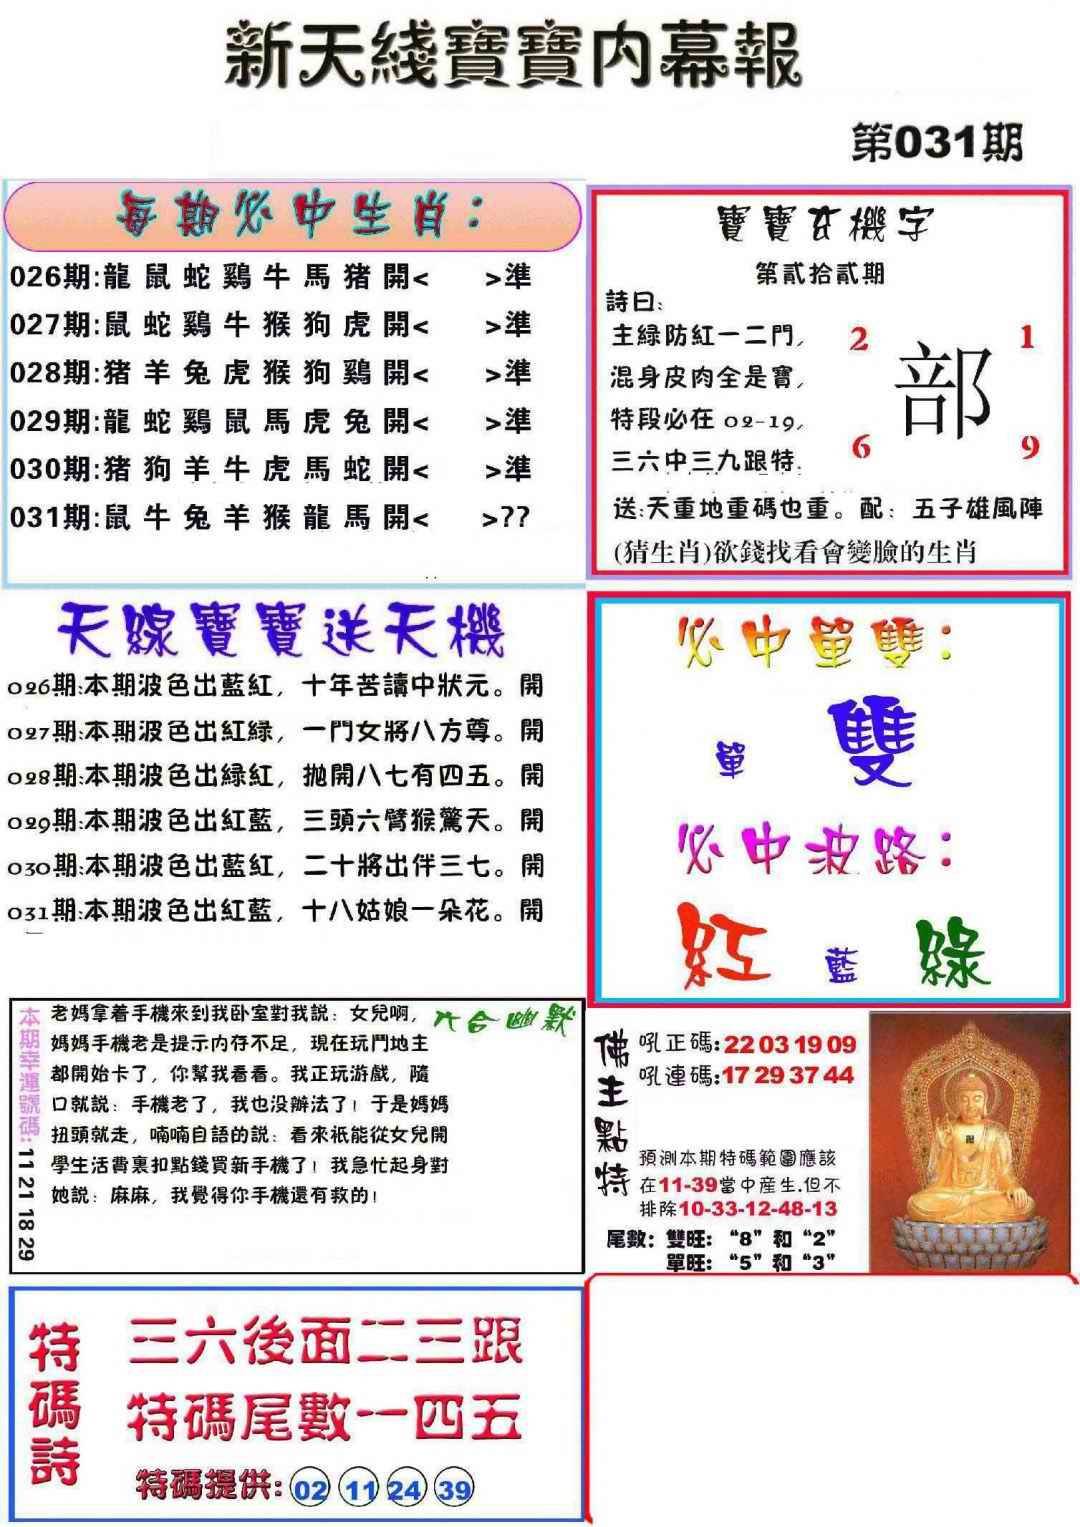 新天綫寶寶内幕報
第031期
每期必中生肖：
026期:龍 鼠 蛇 鷄 牛 馬 猪 開< >準
027期:鼠 蛇 鷄 牛 猴 狗 虎 開< >準
028期:猪 羊 兔 虎 猴 狗 鷄 開< >準
029期:龍 蛇 鷄 鼠 馬 虎 兔 開< >準
030期:猪 狗 羊 牛 虎 馬 蛇 開< >準
031期:鼠 牛 兔 羊 猴 龍 馬 開< >??
寶寶玄機字
第貳拾貳期
詩曰:
主緑防紅一二門,
混身皮肉全是寶,
特段必在 02-19,
三六中三九跟特.
2 1
部
6 9
送:天重地重碼也重。配：五子雄風陣
(猜生肖)欲錢找看會變臉的生肖
天線寶寶送天機
026期:本期波色出藍紅，十年苦讀中狀元。開
027期:本期波色出紅緑，一門女將八方尊。開
028期:本期波色出緑紅，抛開八七有四五。開
029期:本期波色出紅藍，三頭六臂猴驚天。開
030期:本期波色出藍紅，二十將出伴三七。開
031期:本期波色出紅藍，十八姑娘一朵花。開
必中單雙：
單 雙
必中波路：
紅 藍 綠
本期幸運號碼:11 21 18 29
六合幽默
老媽拿着手機來到我卧室對我說：女兒啊，
媽媽手機老是提示内存不足，現在玩鬥地主
都開始卡了，你幫我看看。我正玩游戲，隨
口就說：手機老了，我也没辦法了！于是媽媽
扭頭就走，喃喃自語的說：看來祇能從女兒開
學生活費裏扣點錢買新手機了！我急忙起身對
她說：麻麻，我覺得你手機還有救的！
佛主點特
吼正碼:22 03 19 09
吼連碼:17 29 37 44
預測本期特碼範圍應該
在11-39當中産生.但不
排除10-33-12-48-13
尾數：雙旺：“8”和“2”
單旺：“5”和“3”
特碼詩
三六後面二三跟
特碼尾數一四五
特碼提供: 02 11 24 39